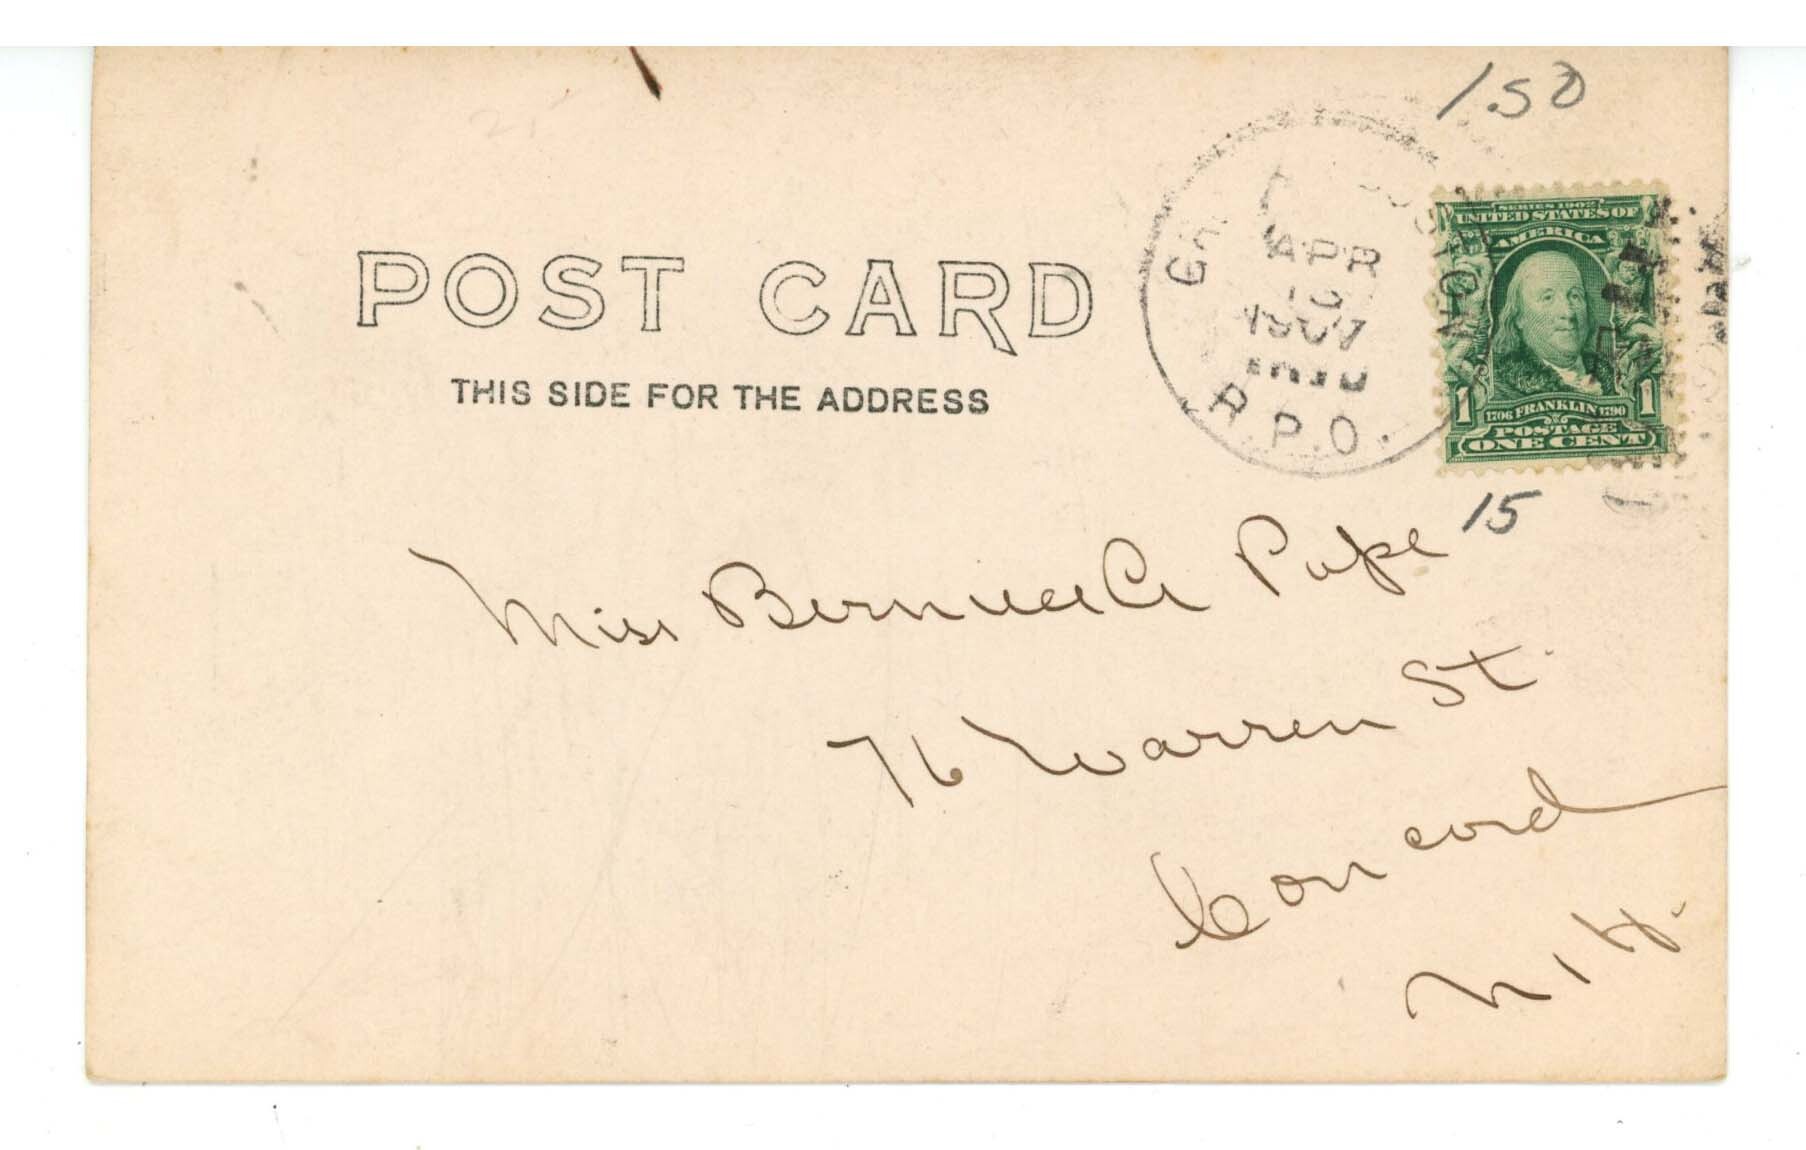 1.50
APR
1907
R.P.O.
SERIES 1902
UNITED STATES OF
AMERICA
1 1706 FRANKLIN 1790 1
POSTAGE
ONE CENT
POST CARD
THIS SIDE FOR THE ADDRESS
15
Miss Bernice A Pape
76 Warren St.
Concord
N. H.